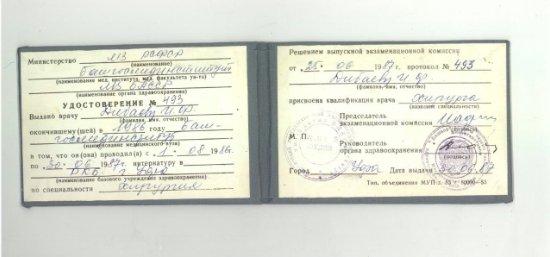 Министерство МЗ РСФСР
(наименование)
Башгосмединститут
(наименование мед. института, мед. факультета ун-та)
МЗ БАССР
(наименование органа здравоохранения)
УДОСТОВЕРЕНИЕ № 493
Выдано врачу Диваеву И. Ф.
(фамилия, имя, отчество)
окончившему(шей) в 1986 году Баш-
госмединститут
(наименование медицинского вуза)
в том, что он(она) проходил(а) с 1. 08 1986г.
по 30 06 1987г. интернатуру в
РКБ г. Уфа
(наименование базового учреждения здравоохранения)
по специальности хирургия
Решением выпускной экзаменационной комиссии
от 25. 06 1987 г. протокол № 493
Диваеву И. Ф.
(фамилия, имя, отчество)
присвоена квалификация врача хирурга
(название специальности)
Председатель
экзаменационной комиссии
М. П.
Руководитель
органа здравоохранения
(подпись)
Город Уфа Дата выдачи 30.06.87
Тип. объединения МУП